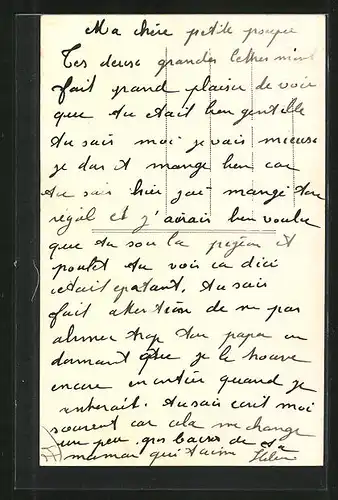 Ma chère petite poupée
Tes deux grandes lettres m'ont
fait grand plaisir de voir
que tu etait bien gentille
tu sais moi je vais mieux
je dors et mange bien car
tu sais hier j'ai mangé ton
régal et j'aurais bien voulu
que tu sois la pigeon et
poulet tu vois ca d'ici
cetait epatant. tu sais
fait attention de ne pas
abimer trop ton papa en
dormant que je le trouve
encore en entier quand je
rentrerait. tu sais ecrit moi
souvent car cela me change
un peu. gros baisers de ta
maman qui t'aime Hélène